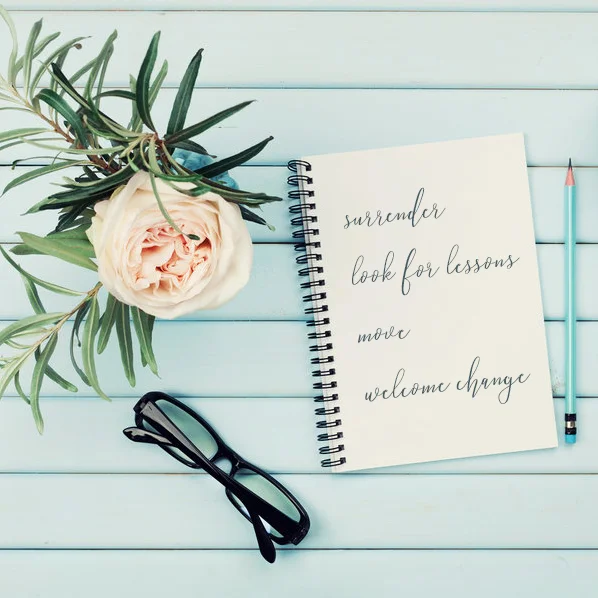 surrender
look for lessons
move
welcome change